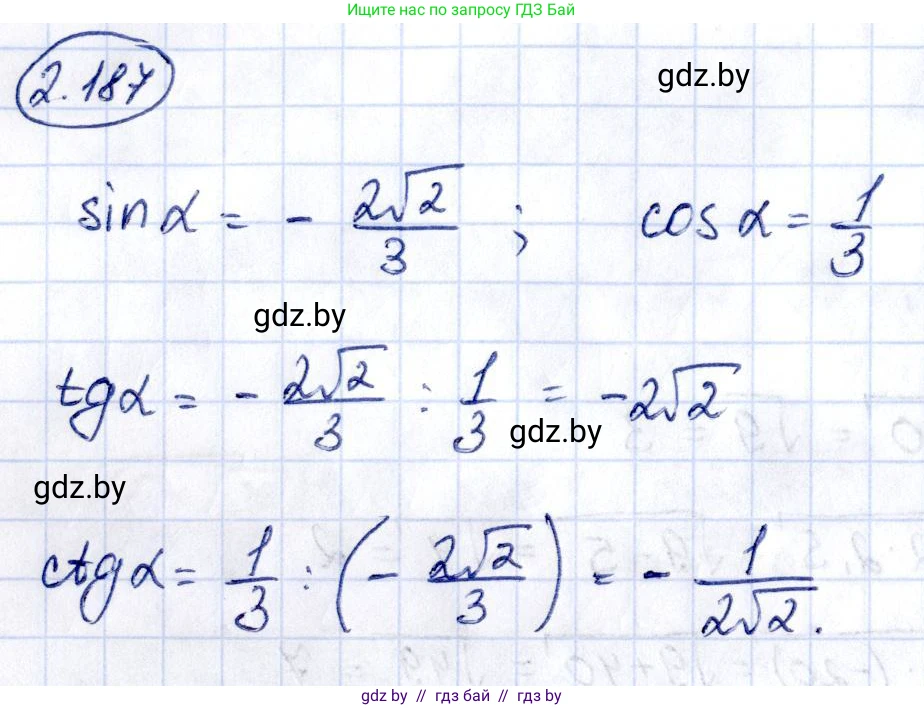 Ищите нас по запросу ГДЗ Бай
2.187
gdz.by
sin α = - 2√2/3 ; cos α = 1/3
gdz.by
tg α = - 2√2/3 : 1/3 = -2√2
gdz.by
gdz.by
ctg α = 1/3 : (- 2√2/3) = - 1/2√2.
gdz.by // гдз бай // gdz by